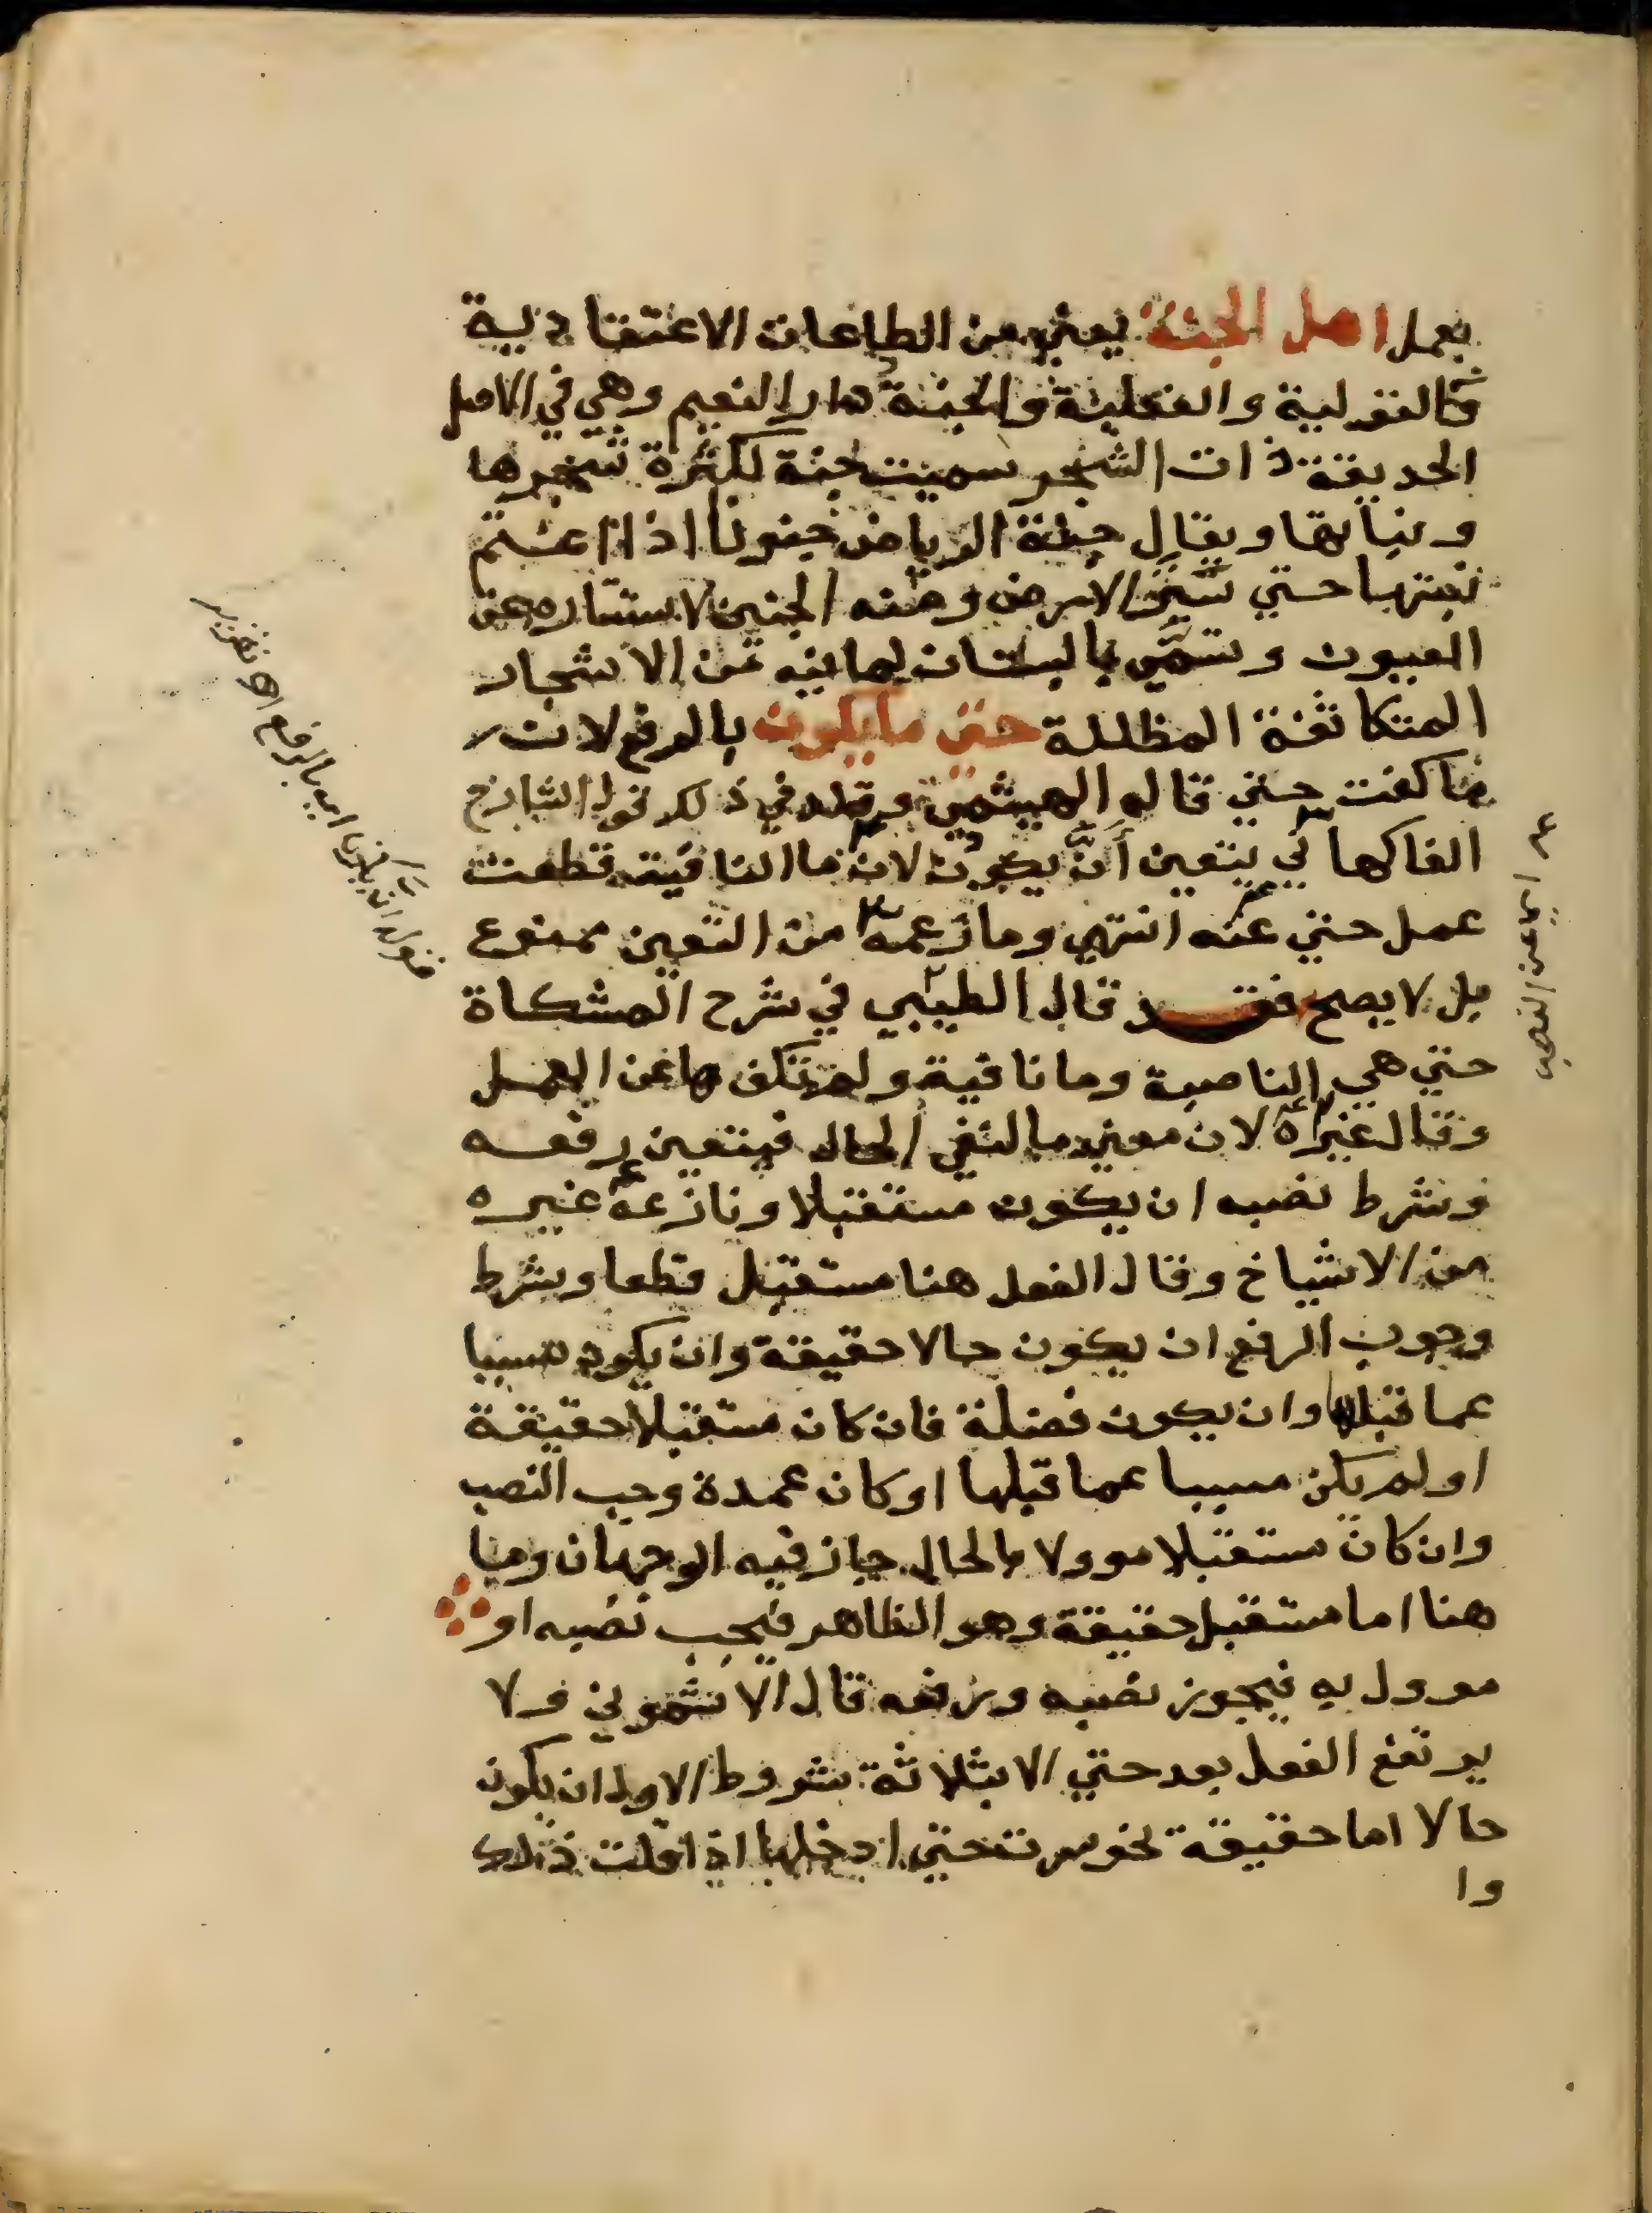 بعمل اهل الجنة يعني من الطاعات الاعتقادية
والقولية والفعلية والجنة دار النعيم وهي في الاصل
الحديقة ذات الشجر سميت جنة لكثرة شجرها
ونباتها ويقال جنة الرياض جنونا اذا اعتم
نبتها حتي ستر الارض ومنه الجنين لاستتاره عن
العيون وتسمي بالبستان لما فيه من الاشجار
المتكاثفة المظللة حتي ما يكون بالرفع لان
ما كفت حتي قاله الهيثمي وقلد في ذلك نحو الشارح
الفاكهاني يتعين أن يكون لان ما النافية قطعت
عمل حتي عنه انتهي وما زعمه من التعين ممنوع
بل لا يصح فقد قال الطيبي في شرح المشكاة
حتي هي الناصبة وما نافية ولم تكف ها عن العمل
وقال غيره لان معني ما لنفي الحال فيتعين رفعه
وشرط نصبه ان يكون مستقبلا ونازعه غيره
من الاشياخ وقال الفعل هنا مستقبل قطعا وشرط
وجوب الرفع ان يكون حالا حقيقة وان يكون مسببا
عما قبلها وان يكون فضلة فان كان مستقبلا حقيقة
او لم يكن مسببا عما قبلها او كان عمدة وجب النصب
وان كان مستقبلا موولا بالحال جاز فيه الوجهان وما
هنا اما مستقبل حقيقة وهو الظاهر فيجب نصبه او
موول به فيجوز نصبه ورفعه قال الاشموني ولا
يرتفع الفعل بعد حتي الا بثلاثة شروط الاول ان يكون
حالا اما حقيقة نحو سرت حتي ادخلها اذا قلت ذلك
وا
قوله ان يكون اي بالرفع
اي عن النصب